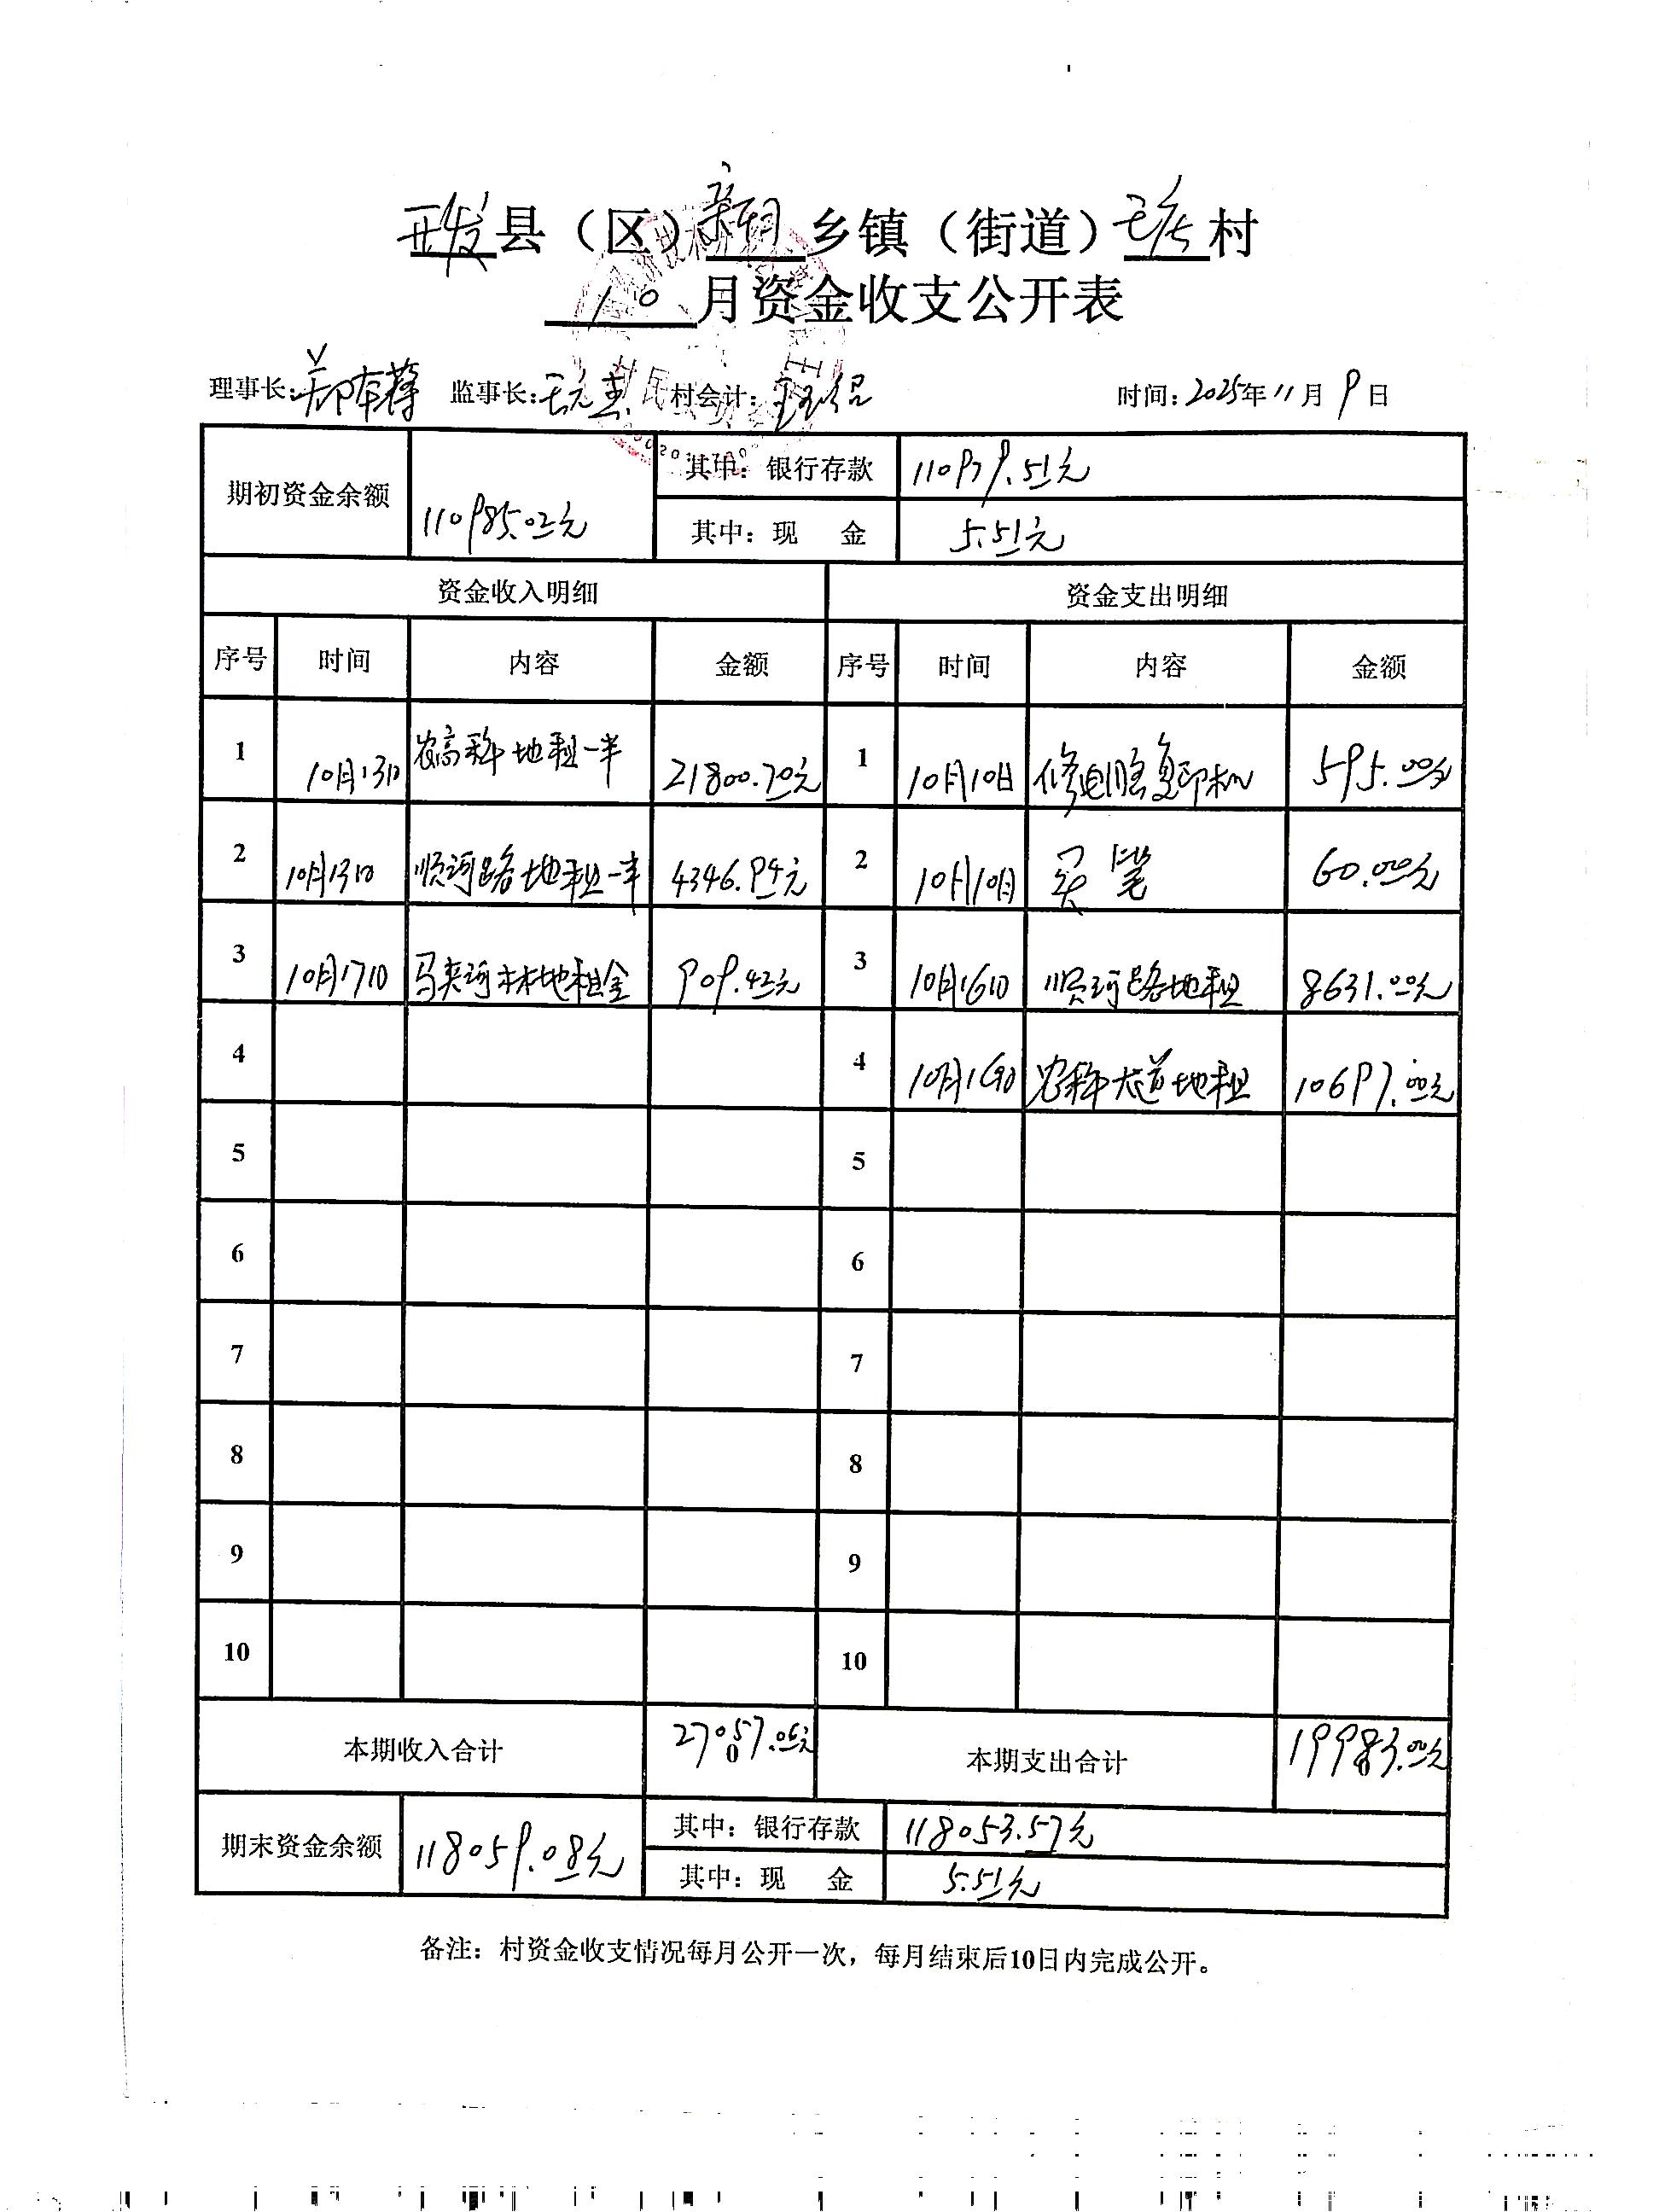 开发县（区）宗胡乡镇（街道）王店村
10月资金收支公开表
理事长： 监事长：王元 村会计： 时间：2025年11月9日
期初资金余额 110985.02元 其中：银行存款 110979.51元
其中：现 金 5.51元
资金收入明细 资金支出明细
序号 时间 内容 金额 序号 时间 内容 金额
1 10月13日 农高科地租一半 21800.70元 1 10月10日 修电脑复印机 595.00元
2 10月13日 顺河路地租一半 4346.94元 2 10月10日 买笔 60.00元
3 10月17日 马夹河林地租金 909.42元 3 10月16日 顺河路地租 8631.00元
4 4 10月16日 农科大道地租 10697.00元
5 5
6 6
7 7
8 8
9 9
10 10
本期收入合计 27057.06元 本期支出合计 19983.00元
期末资金余额 118059.08元 其中：银行存款 118053.57元
其中：现 金 5.51元
备注：村资金收支情况每月公开一次，每月结束后10日内完成公开。